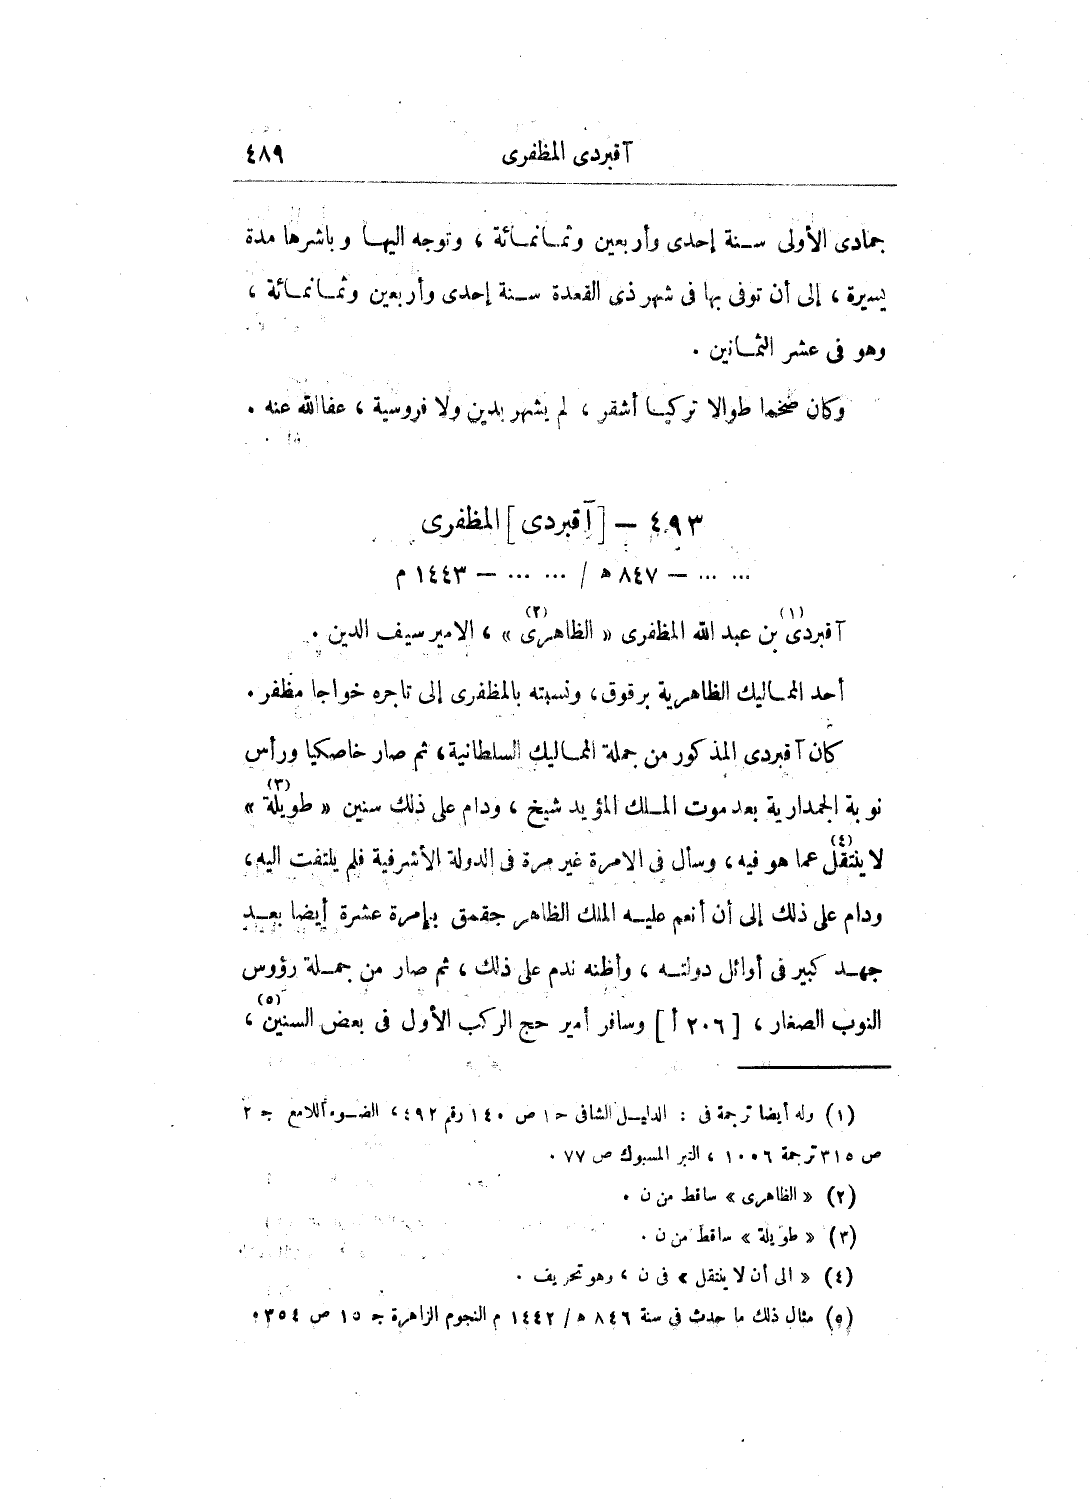 آقبردى المظفرى ٤٨٩
جمادى الأولى سـنة إحدى وأربعين وثمـانمـائة ، وتوجه اليهـا وباشرها مدة
يسيرة ، إلى أن توفى بها فى شهر ذى القعدة سـنة إحدى وأربعين وثمـانمـائة ،
وهو فى عشر الثمـانين .
وكان ضخما طوالا تركيـا أشقر ، لم يشهر بدين ولا فروسية ، عفا الله عنه .
٤٩٣ – [ آقبردى ] المظفرى
... ... – ٨٤٧ ه / ... ... – ١٤٤٣ م
آقبردى (١) بن عبد الله المظفرى « الظاهرى (٢) » ، الامير سيف الدين .
أحد المماليك الظاهرية برقوق ، ونسبته بالمظفرى إلى تاجره خواجا مظفر .
كان آقبردى المذكور من جملة المماليك السلطانية ، ثم صار خاصكيا ورأس
نوبة الجمدارية بعد موت الملـك المؤيد شيخ ، ودام على ذلك سنين « طويلة (٣) »
لا ينتقل (٤) عما هو فيه ، وسأل فى الامرة غير مرة فى الدولة الأشرفية فلم يلتفت اليه ،
ودام على ذلك إلى أن أنعم عليـه الملك الظاهر جقمق بإمرة عشرة أيضا بعـد
جهـد كبير فى أوائل دولتـه ، وأظنه ندم على ذلك ، ثم صار من جمـلة رؤوس
النوب الصغار ، [ ٢٠٦ أ ] وسافر أمير حج الركب الأول فى بعض السنين (٥) ،
(١) وله أيضا ترجمة فى : الدليـل الشافى ح ١ ص ١٤٠ رقم ٤٩٢ ، الضـوء اللامع ج ٢
ص ٣١٥ ترجمة ١٠٠٦ ، التبر المسبوك ص ٧٧ .
(٢) « الظاهرى » ساقط من ن .
(٣) « طويلة » ساقط من ن .
(٤) « الى أن لا ينتقل » فى ن ، وهو تحريف .
(٥) مثال ذلك ما حدث فى سنة ٨٤٦ ه / ١٤٤٢ م النجوم الزاهرة ج ١٥ ص ٣٥٤ .